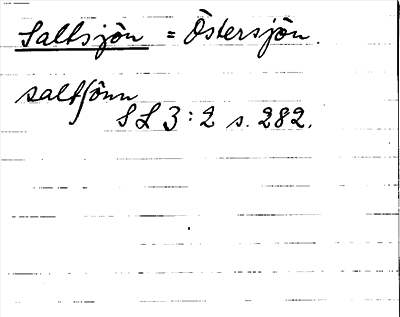 Saltsjön = Östersjön.
saltſönn
SL 3:2 s. 282.